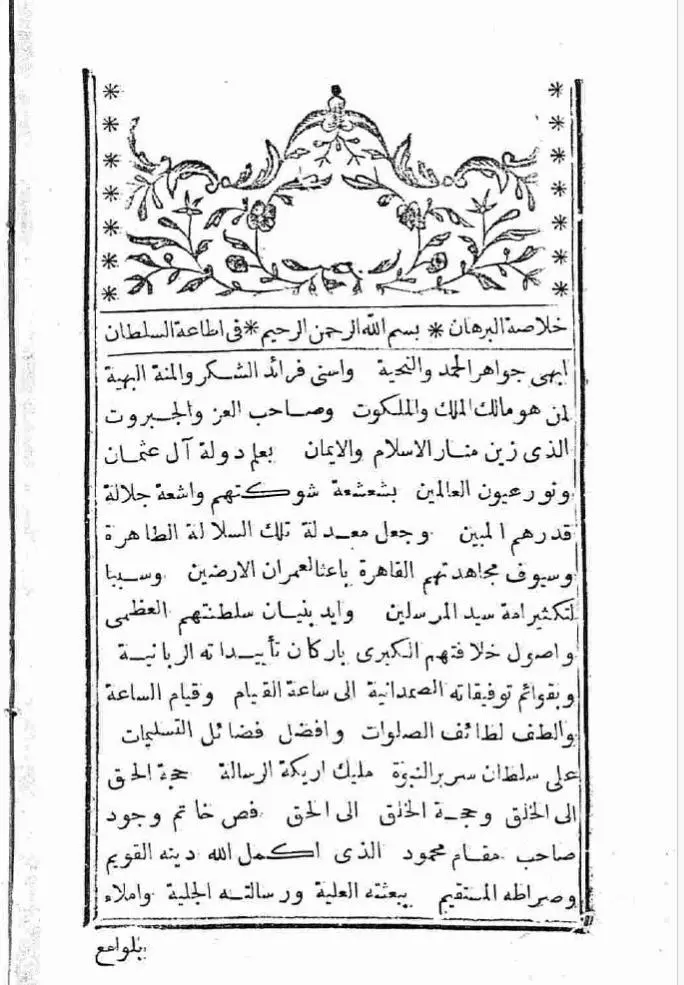 خلاصة البرهان * بسم الله الرحمن الرحيم * فى اطاعة السلطان
ابهى جواهر الحمد والتحية واسنى فرائد الشكر والمنة البهية
لمن هو مالك الملك والملكوت وصاحب العز والجبروت
الذى زين منار الاسلام والايمان بعلم دولة آل عثمان
ونور عيون العالمين بشعشعة شوكتهم واشعة جلالة
قدرهم المبين وجعل معدلة تلك السلالة الطاهرة
وسيوف مجاهدتهم القاهرة باعثا لعمران الارضين وسببا
لتكثير امة سيد المرسلين وايد بنيان سلطنتهم العظمى
واصول خلافتهم الكبرى باركان تأييداته الربانية
وبقوائم توفيقاته الصمدانية الى ساعة القيام وقيام الساعة
والطف لطائف الصلوات وافضل فضائل التسليمات
على سلطان سرير النبوة مليك اريكة الرسالة حجة الحق
الى الخلق وحجة الخلق الى الحق فص خاتم وجود
صاحب مقام محمود الذى اكمل الله دينه القويم
وصراطه المستقيم ببعثته العلية ورسالته الجلية واملاء
بلوامع